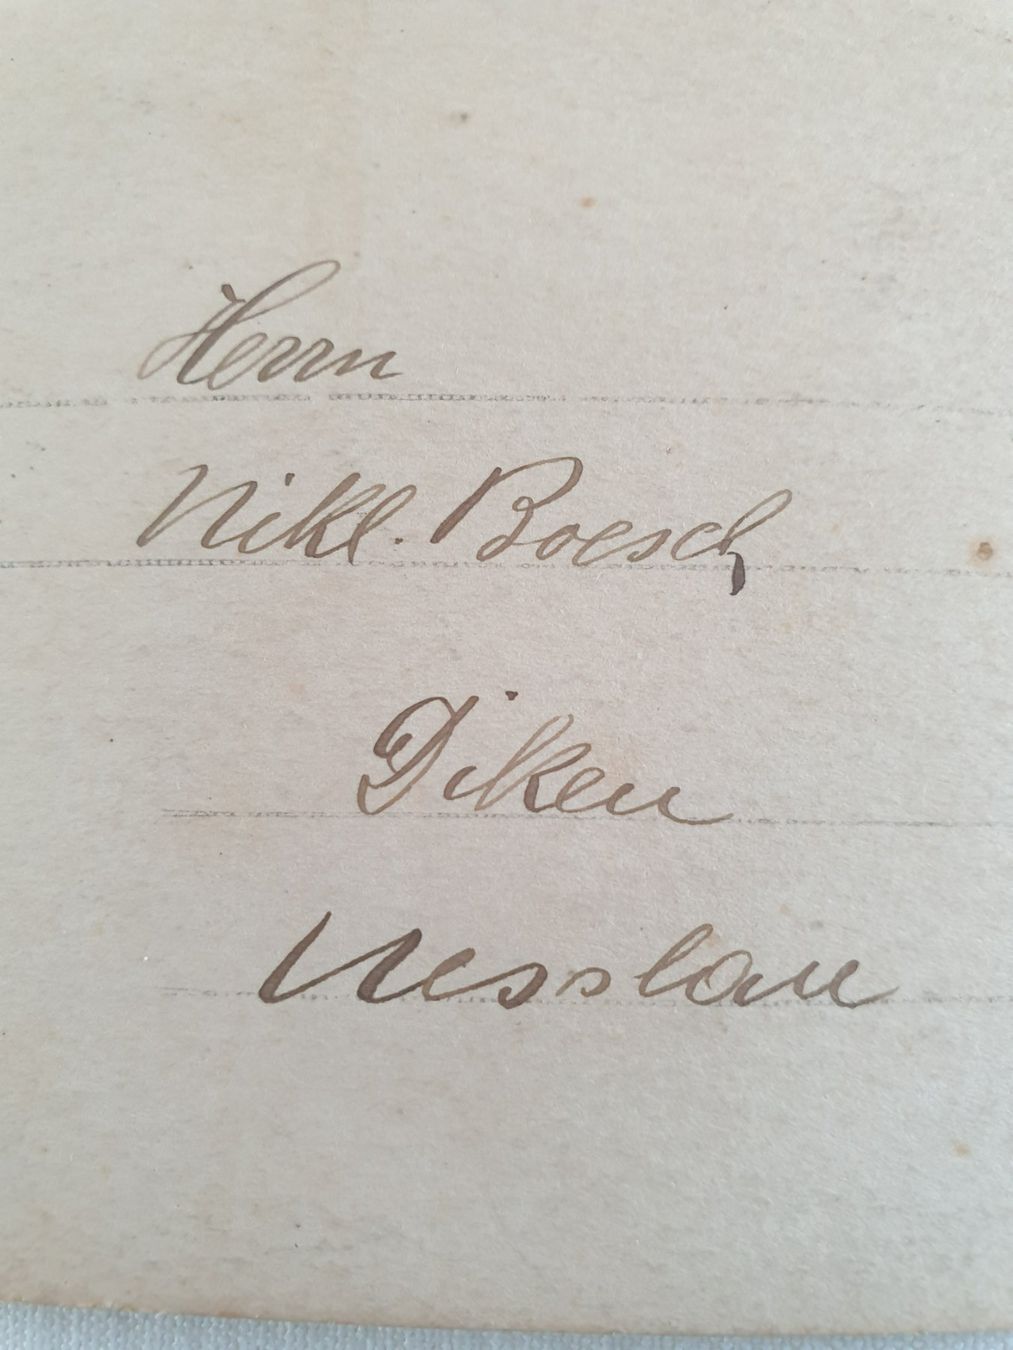 Herrn
Nikl. Boesch
Diken
Nesslau